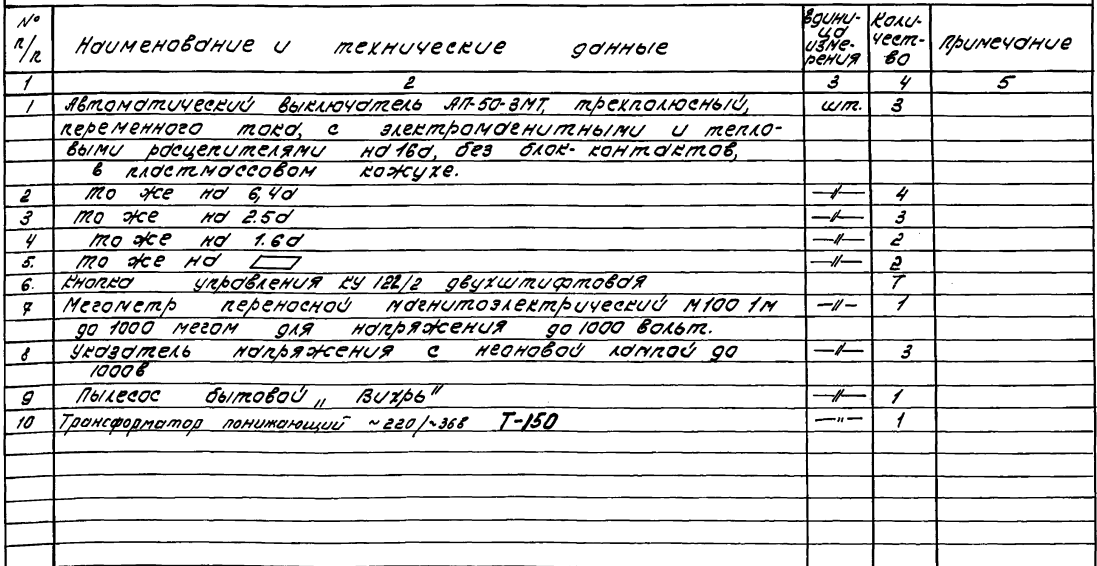 № п/п Наименование и технические данные Единица измерения Количество Примечание
1 2 3 4 5
1 Автоматический выключатель АП-50-3МТ, трехполюсный, шт. 3
переменного тока, с электромагнитными и тепло-
выми расцепителями на 16а, без блок-контактов,
в пластмассовом кожухе.
2 то же на 6,4а —〃— 4
3 то же на 2.5а —〃— 3
4 то же на 1.6а —〃— 2
5. то же на —〃— 2
6. Кнопка управления КУ 122/2 двухштифтовая
7 Мегометр переносной магнитоэлектрический М100 1м —〃— 1
до 1000 мегом для напряжения до 1000 вольт.
8 Указатель напряжения с неоновой лампой до —〃— 3
1000в
9 Пылесос бытовой „Вихрь" —〃— 1
10 Трансформатор понижающий ~220/~36в Т-150 —〃— 1